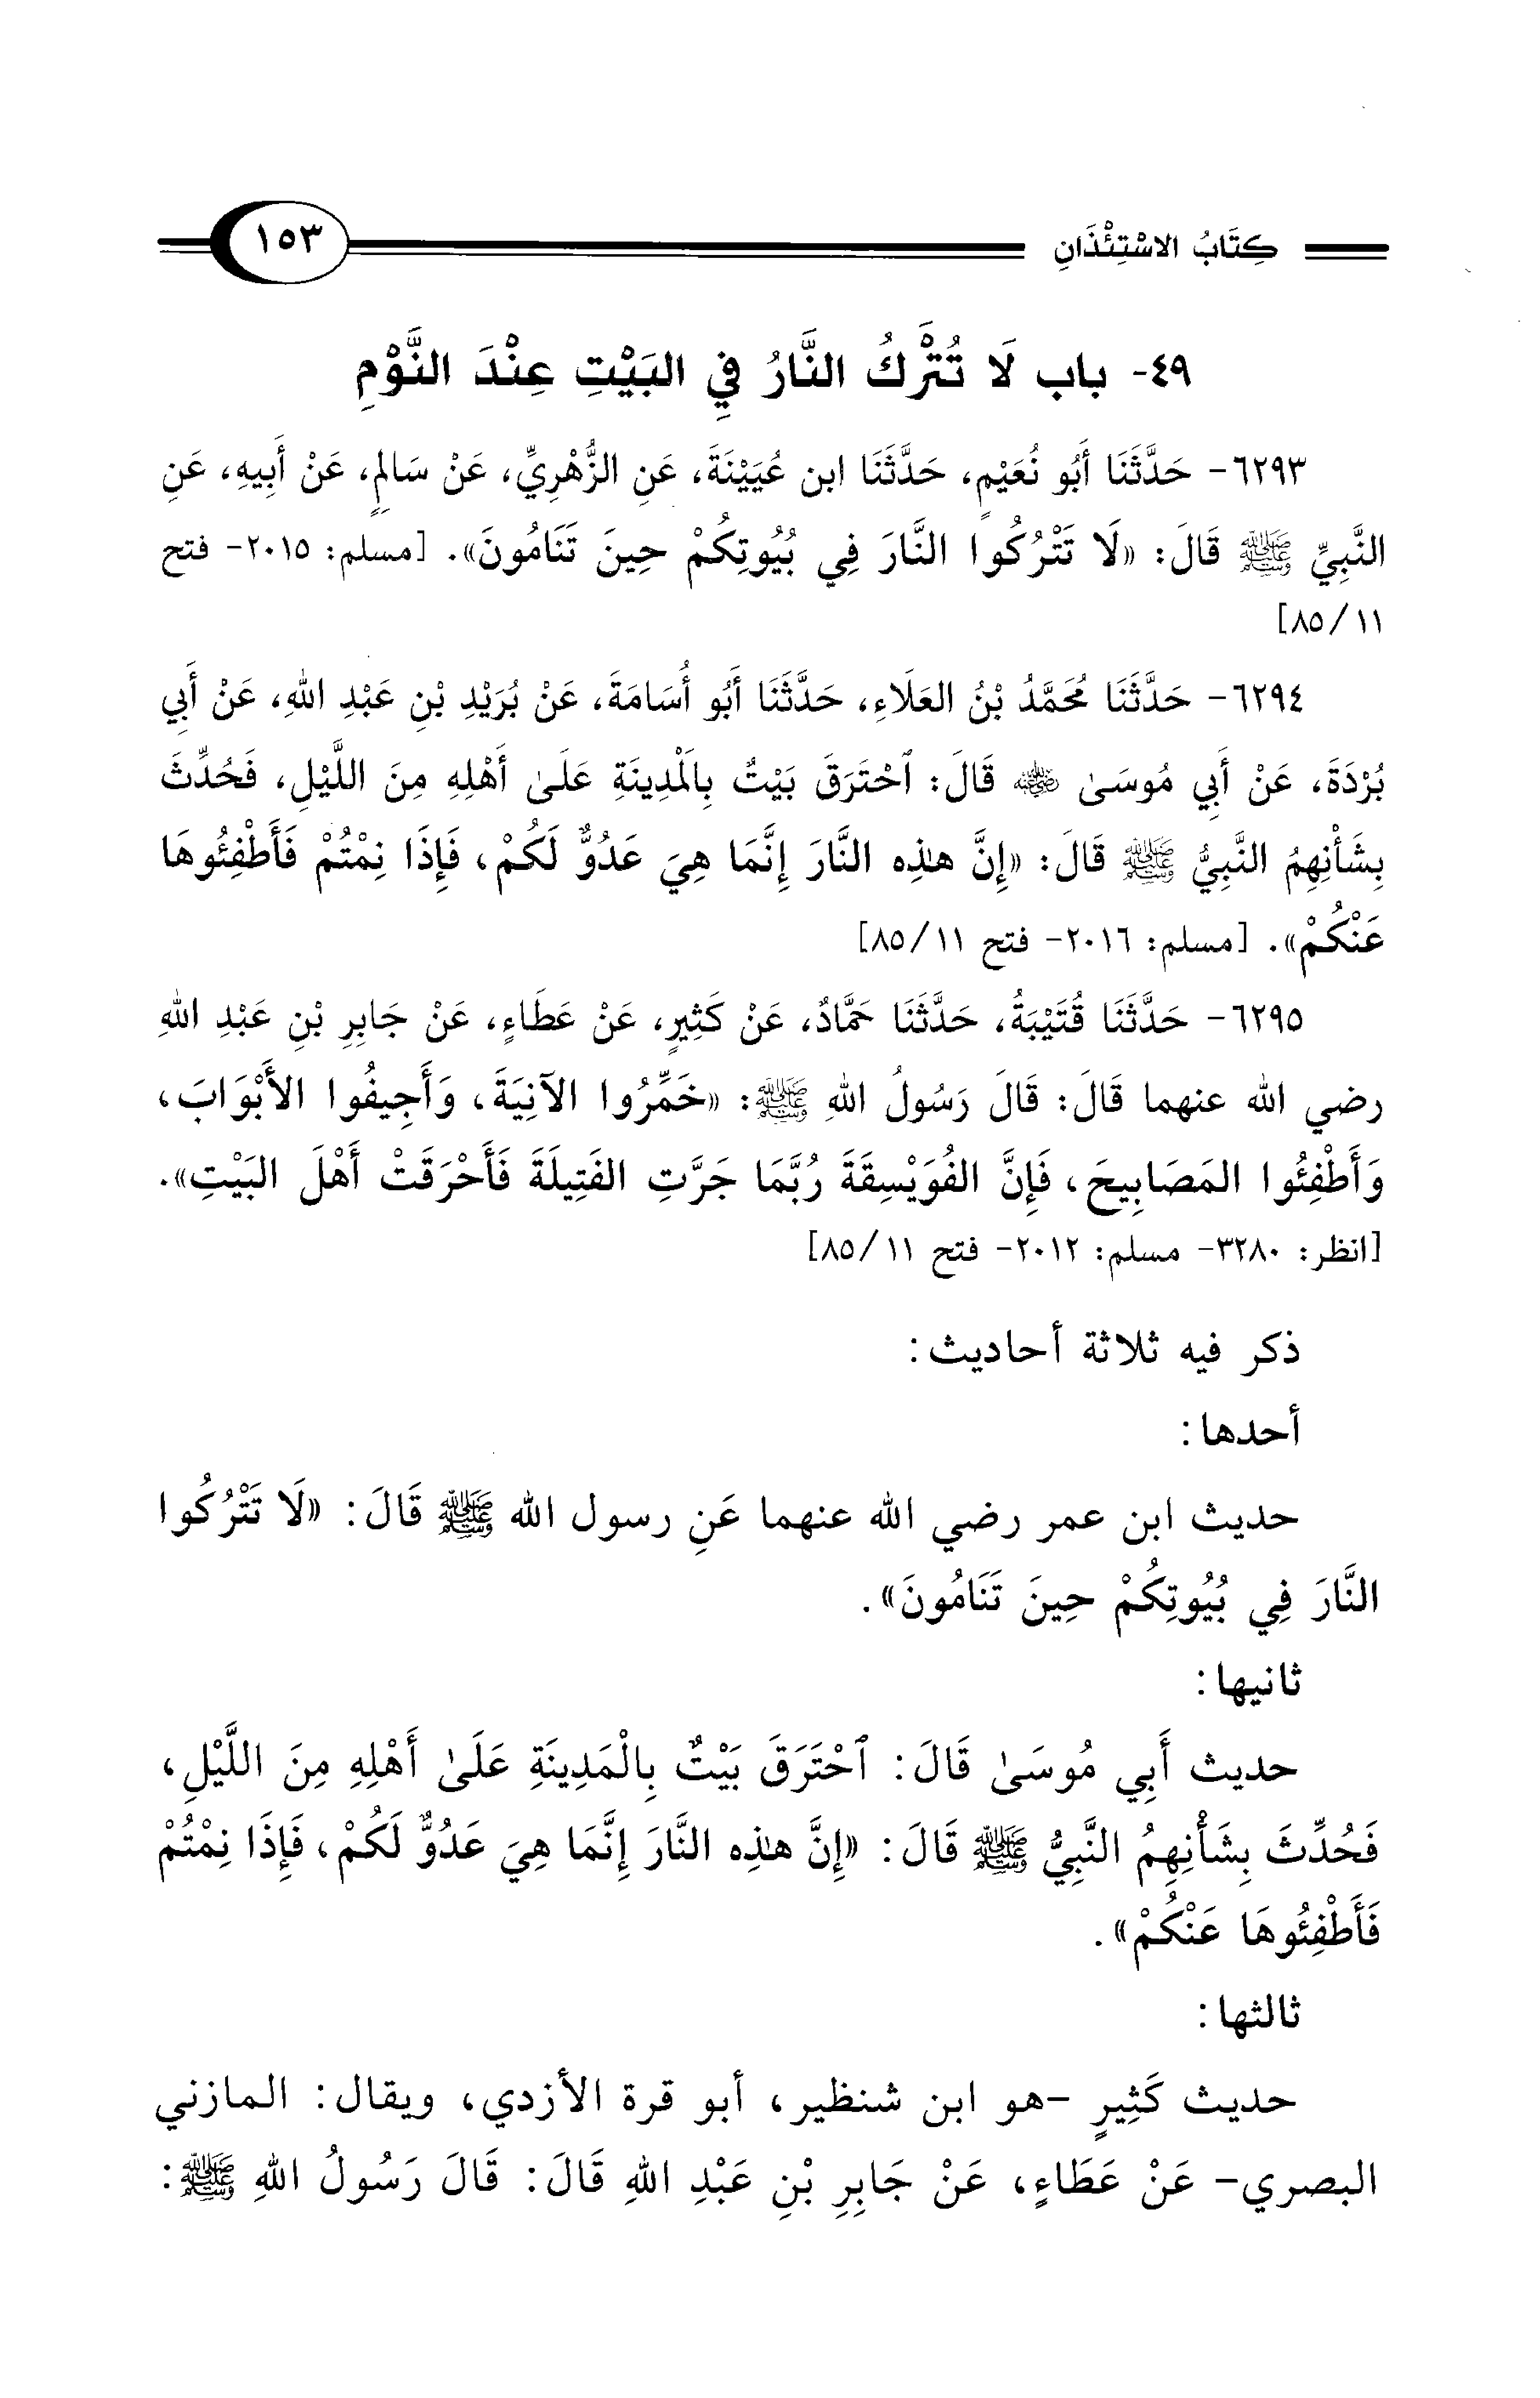 كِتَابُ الاسْتِئْذَانِ ١٥٣
٤٩- باب لَا تُتْرَكُ النَّارُ فِي البَيْتِ عِنْدَ النَّوْمِ
٦٢٩٣- حَدَّثَنَا أَبُو نُعَيْمٍ، حَدَّثَنَا ابن عُيَيْنَةَ، عَنِ الزُّهْرِيِّ، عَنْ سَالِمٍ، عَنْ أَبِيهِ، عَنِ
النَّبِيِّ ﷺ قَالَ: «لَا تَتْرُكُوا النَّارَ فِي بُيُوتِكُمْ حِينَ تَنَامُونَ». [مسلم: ٢٠١٥- فتح
٨٥/١١]
٦٢٩٤- حَدَّثَنَا مُحَمَّدُ بْنُ العَلَاءِ، حَدَّثَنَا أَبُو أُسَامَةَ، عَنْ بُرَيْدِ بْنِ عَبْدِ اللهِ، عَنْ أَبِي
بُرْدَةَ، عَنْ أَبِي مُوسَىٰ ﵁ قَالَ: ٱحْتَرَقَ بَيْتٌ بِالْمَدِينَةِ عَلَىٰ أَهْلِهِ مِنَ اللَّيْلِ، فَحُدِّثَ
بِشَأْنِهِمُ النَّبِيُّ ﷺ قَالَ: «إِنَّ هٰذِه النَّارَ إِنَّمَا هِيَ عَدُوٌّ لَكُمْ، فَإِذَا نِمْتُمْ فَأَطْفِئُوهَا
عَنْكُمْ». [مسلم: ٢٠١٦- فتح ٨٥/١١]
٦٢٩٥- حَدَّثَنَا قُتَيْبَةُ، حَدَّثَنَا حَمَّادٌ، عَنْ كَثِيرٍ، عَنْ عَطَاءٍ، عَنْ جَابِرِ بْنِ عَبْدِ اللهِ
رضي الله عنهما قَالَ: قَالَ رَسُولُ اللهِ ﷺ: «خَمِّرُوا الآنِيَةَ، وَأَجِيفُوا الأَبْوَابَ،
وَأَطْفِئُوا المَصَابِيحَ، فَإِنَّ الفُوَيْسِقَةَ رُبَّمَا جَرَّتِ الفَتِيلَةَ فَأَحْرَقَتْ أَهْلَ البَيْتِ».
[انظر: ٣٢٨٠- مسلم: ٢٠١٢- فتح ٨٥/١١]
ذكر فيه ثلاثة أحاديث:
أحدها:
حديث ابن عمر رضي الله عنهما عَنِ رسول الله ﷺ قَالَ: «لَا تَتْرُكُوا
النَّارَ فِي بُيُوتِكُمْ حِينَ تَنَامُونَ».
ثانيها:
حديث أَبِي مُوسَىٰ قَالَ: ٱحْتَرَقَ بَيْتٌ بِالْمَدِينَةِ عَلَىٰ أَهْلِهِ مِنَ اللَّيْلِ،
فَحُدِّثَ بِشَأْنِهِمُ النَّبِيُّ ﷺ قَالَ: «إِنَّ هٰذِه النَّارَ إِنَّمَا هِيَ عَدُوٌّ لَكُمْ، فَإِذَا نِمْتُمْ
فَأَطْفِئُوهَا عَنْكُمْ».
ثالثها:
حديث كَثِيرٍ -هو ابن شنظير، أبو قرة الأزدي، ويقال: المازني
البصري- عَنْ عَطَاءٍ، عَنْ جَابِرِ بْنِ عَبْدِ اللهِ قَالَ: قَالَ رَسُولُ اللهِ ﷺ: